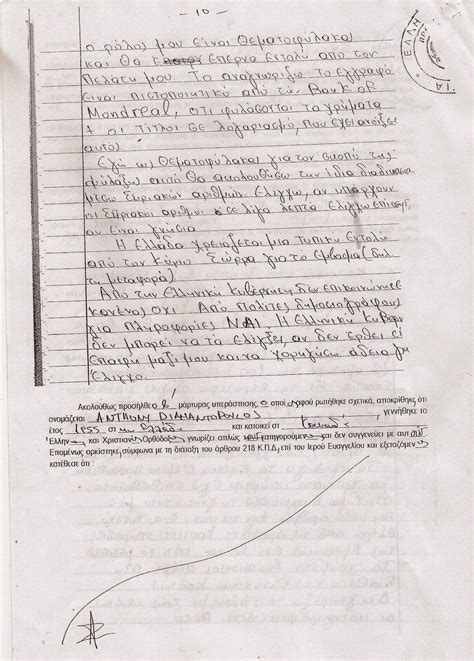 - 10 -
ο ρόλος μου είναι Θεματοφύλακας
και θα έπερνα εντολή από τον
Πελάτη μου. Το αναγνωρίζω το έγγραφο
είναι πιστοποιητικό από την Bank of
Mondreal, ότι φυλάσσονται τα χρήματα
+ οι τίτλοι σε λογαριασμό, που έχει ανοίξει
αυτό)
Εγώ ως Θεματοφύλακας για τον σκοπό της
φύλαξης αυτό θα ακολουθήσω την ίδια διαδικασία
μέσω Σειριακών αριθμών ελέγχω, αν υπάρχουν
οι Σειριακοί αριθμοί σε λίγα λεπτά ελέγχω επίσης
αν είναι γνήσια
Η Ελλάδα χρειάζεται μια τυπική εντολή
από τον Κύριο Σώρρα για το έμβασμα (δηλ
τη μεταφορά)
Από την Ελληνική Κυβέρνηση δεν επικοινώνησε
κανένας όχι. Από πολίτες δημοσιογράφους
για πληροφορίες ΝΑΙ. Η Ελληνική Κυβερν
δεν μπορεί να τα ελέγξει, αν δεν έρθει σε
Επαφή μαζί μου και να χορηγήσω άδεια για
έλεγχο.
Ακολούθως προσήλθε μάρτυρας υπεράσπισης ο οποί αφού ρωτήθηκε σχετικά, αποκρίθηκε, ότι
ονομάζεται ANTHONY DIAMANTOPOULOS, γεννήθηκε το
έτος 1955 στην Ελλάδα και κατοικεί στ Καναδά
Έλλην και Χριστιαν Ορθόδοξ, γνωρίζει απλώς κατηγορούμενο και δεν συγγενεύει με αυτ
Επομένως ορκίστηκε, σύμφωνα με τη διάταξη του άρθρου 218 Κ.Π.Δ., επί του Ιερού Ευαγγελίου και εξεταζόμεν
κατέθεσε ότι :
ΕΛΛΗ